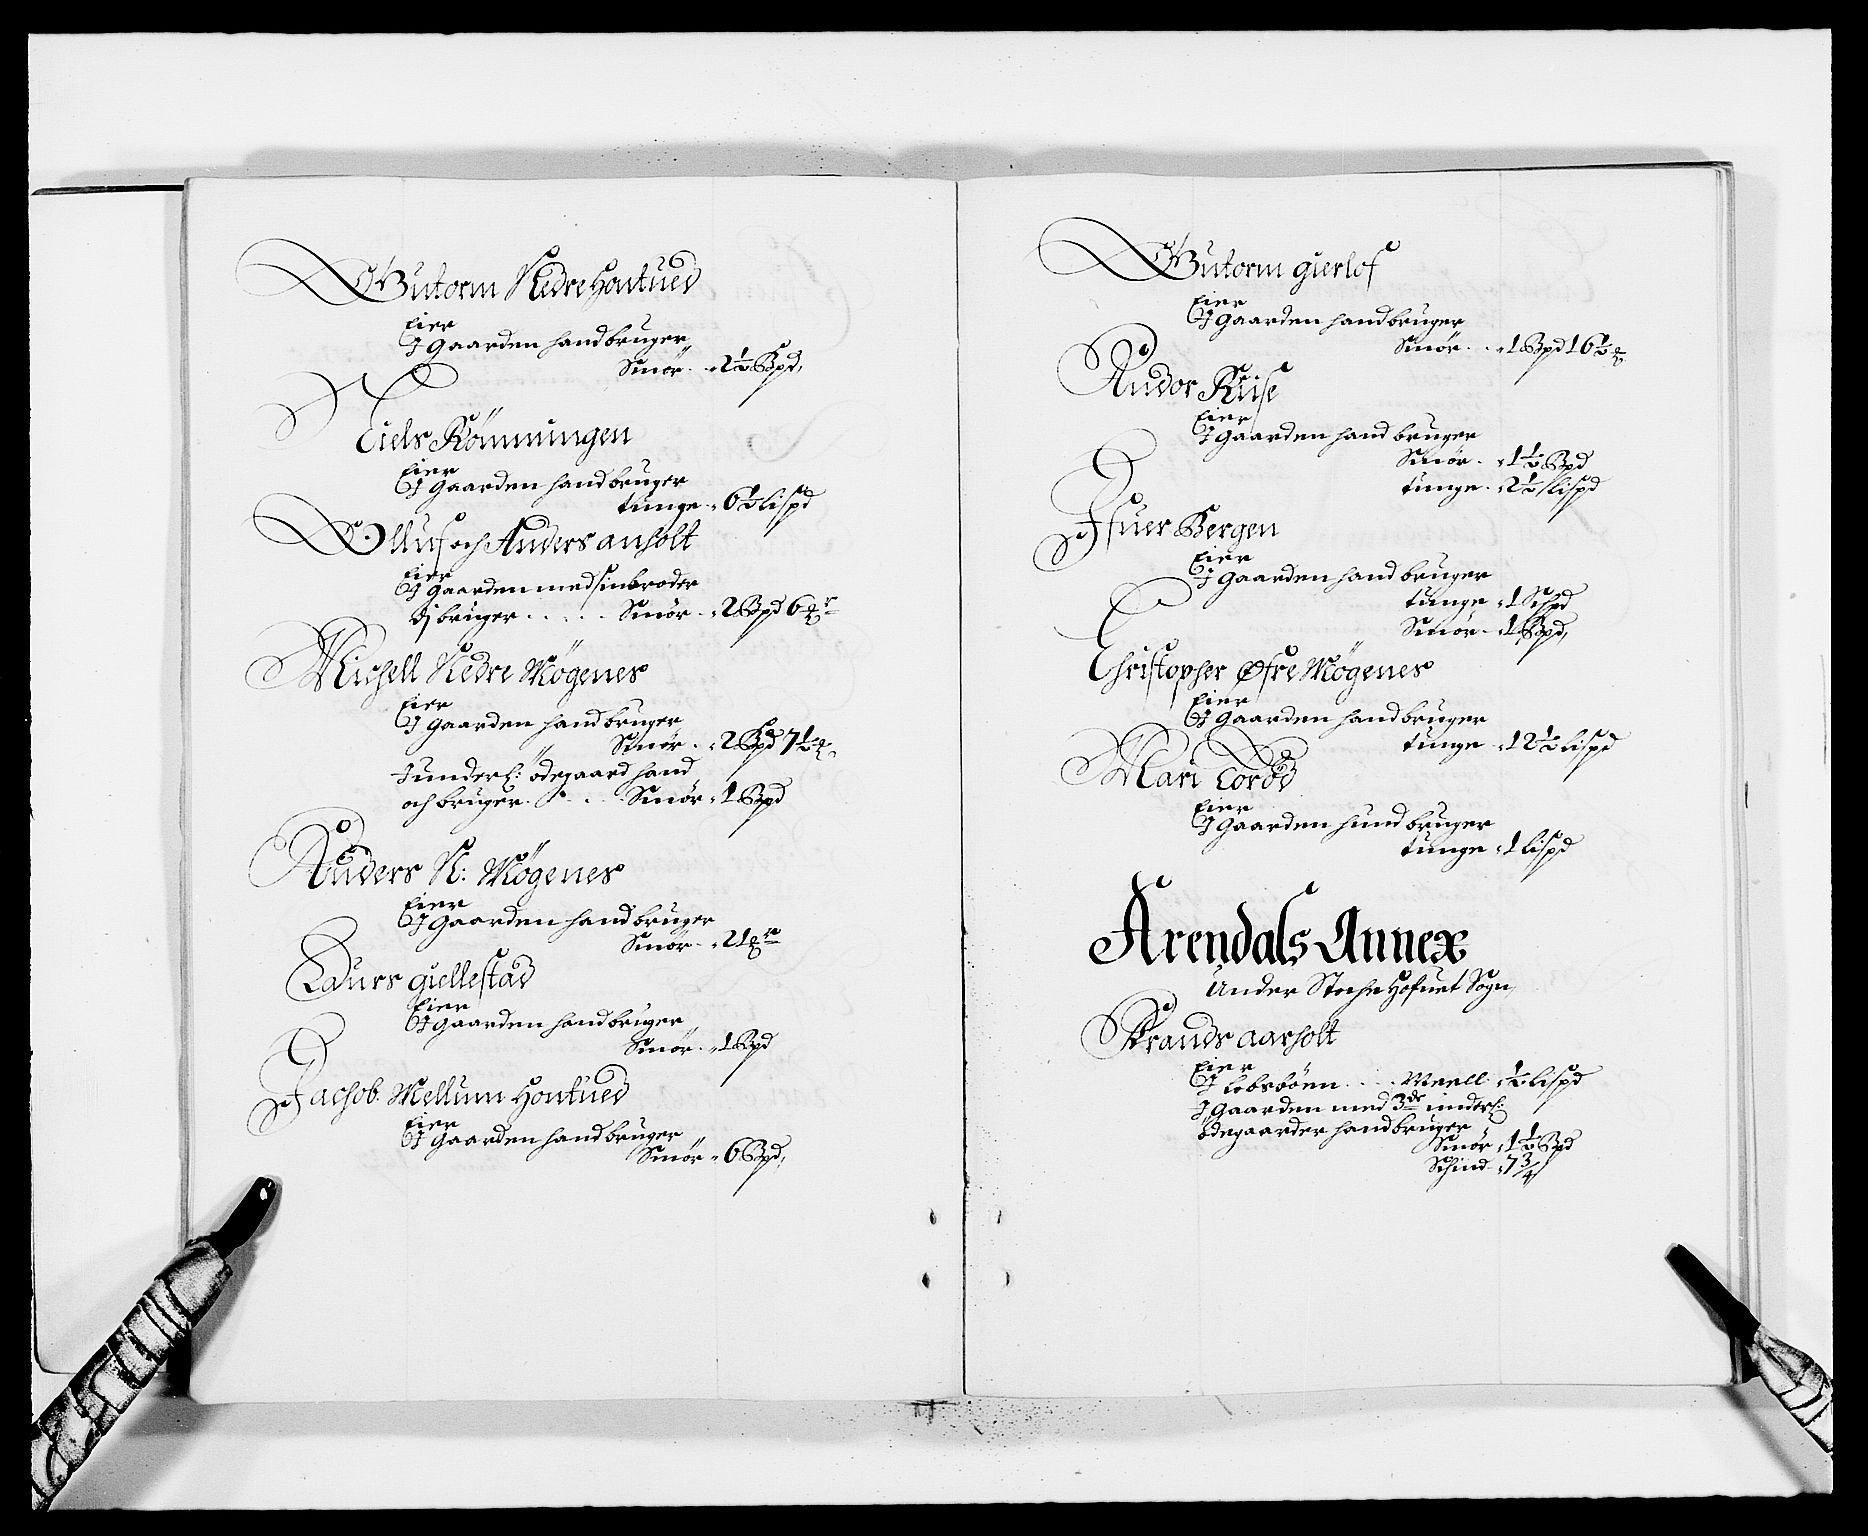 Gutorm Nedre Hontued
Eier
I Gaarden hand bruger
Smör . . 2½ Bpd,
Niels Rönnungen
Eier
I Gaarden hand bruger
tunge . 6½ lispd
Olluf och Anders anholt
Eier
I Gaarden med sin broder
bruger . . . . . Smör . 2 Bpd 6
Michell Nedre Møgenes
Eier
I Gaarden hand bruger
Smör . 2 Bpd 7½
I underl: ödegaard hand
och bruger . . . . Smör . 1 Bpd
Anders N: Møgenes
Eier
I Gaarden hand bruger
Smör . 21
Laurs giellestad
Eier
I Gaarden hand bruger
Smör . 1 Bpd
Jachob Mellum Hontued
Eier
I Gaarden hand bruger
Smör . 6 Bpd,
Gutorm gierlof
Eier
I Gaarden hand bruger
Smör . . 1 Bpd 16½
Andor Kiise
Eier
I Gaarden hand bruger
Smör . 1½ Bpd
tunge . 2½ lispd
Ifuer Bergen
Eier
I Gaarden hand bruger
tunge . 1 Schpd
Smör . 1 Bpd,
Christopher Øfre Møgenes
Eier
I Gaarden hand bruger
tunge . 12½ lispd
Mari Torød
Eier
I Gaarden hund bruger
tunge . 1 lispd
Arendals Annex
Under Stoche Hofuet Sogn,
Frands aarholt
Eier
I . . . . Meell . ½ lispd
I Gaarden med 3de underl:
ödegaarder hand bruger
Smör . 1½ Bpd
Schind . 7¾